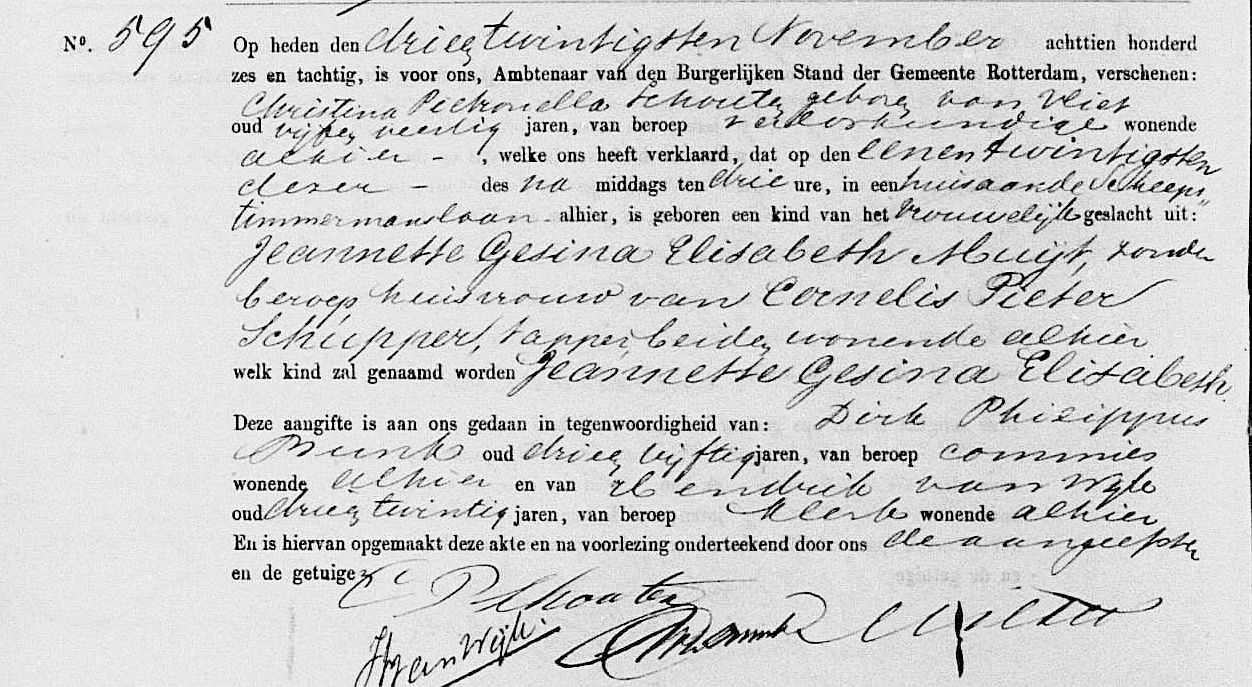 Nº. 595 Op heden den drieentwintigsten November achttien honderd
zes en tachtig, is voor ons, Ambtenaar van den Burgerlijken Stand der Gemeente Rotterdam, verschenen:
Christina Pietronella Schouten geboren van Vliet
oud vijfenveertig jaren, van beroep verloskundige wonende
alhier - , welke ons heeft verklaard, dat op den eenentwintigsten
dezer - des na middags ten drie ure, in een huis aan de Scheeps„
timmermanslaan alhier, is geboren een kind van het vrouwelijk geslacht uit:
Jeannette Gesina Elisabeth Muijt, zonder
beroep huisvrouw van Cornelis Pieter
Schupper, tapper, beiden wonende alhier
welk kind zal genaamd worden Jeannette Gesina Elisabeth.
Deze aangifte is aan ons gedaan in tegenwoordigheid van: Dirk Philippus
Munk oud drieenvijftig jaren, van beroep commies
wonende alhier en van Hendrik van Wyk
oud drieentwintig jaren, van beroep klerk wonende alhier
En is hiervan opgemaakt deze akte en na voorlezing onderteekend door ons de aangeefster
en de getuigen
C P Schouten
HvanWijk.